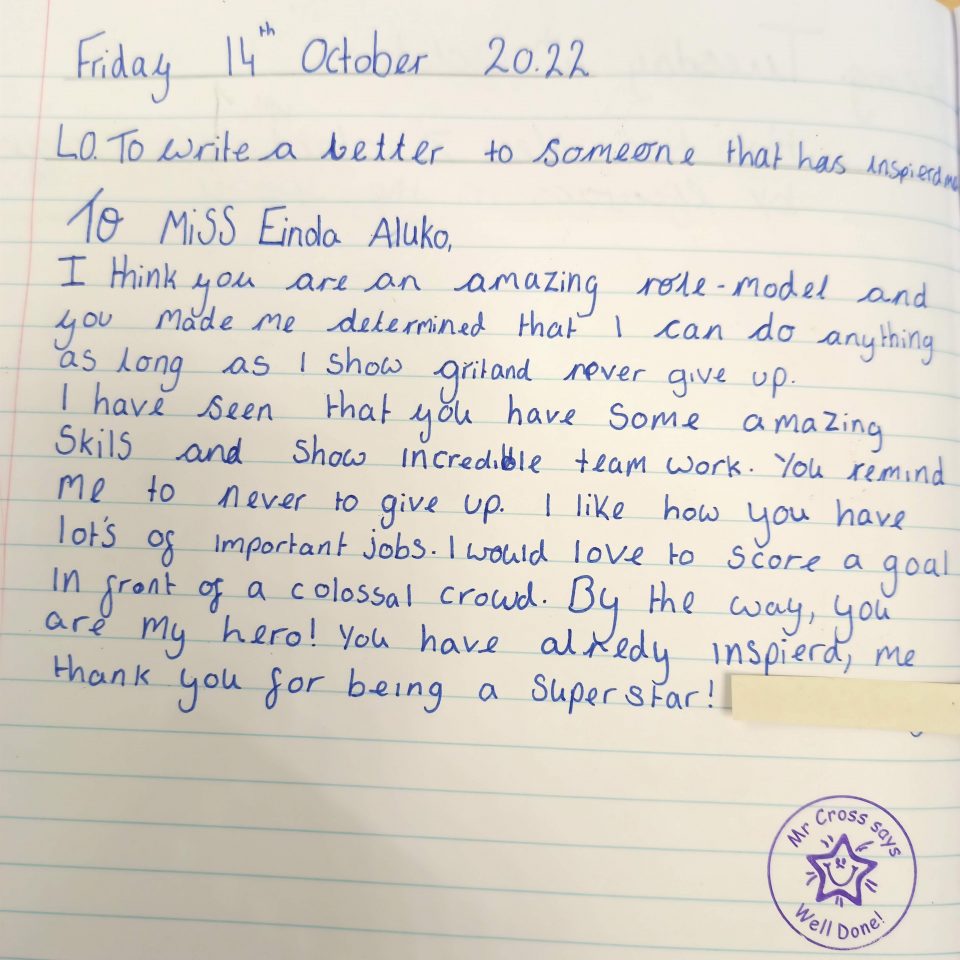 Friday 14th October 20.22
L.O. To write a better to someone that has inspierd me
To Miss Einda Aluko,
I think you are an amazing role-model and
you made me determined that I can do anything
as long as I show grit and never give up.
I have seen that you have some amazing
skils and show incredible team work. You remind
me to never to give up. I like how you have
lot's of important jobs. I would love to score a goal
in front of a colossal crowd. By the way, you
are my hero! You have alredy inspierd, me
thank you for being a superstar!
Mr Cross says
Well Done!